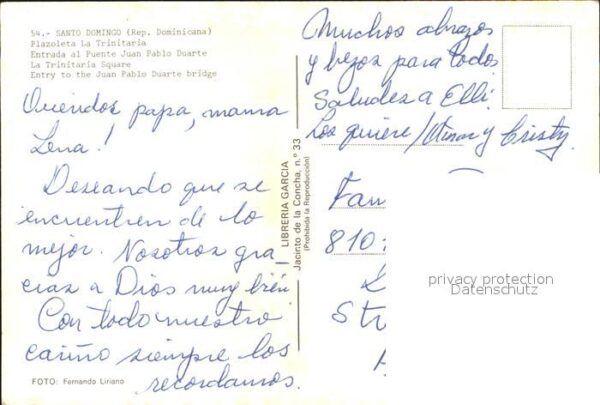 54.- SANTO DOMINGO (Rep. Dominicana)
Plazoleta La Trinitaria
Entrada al Puente Juan Pablo Duarte
La Trinitaria Square
Entry to the Juan Pablo Duarte bridge
Queridos papa, mama
Lena!
Deseando que se
encuentren de lo
mejor. Nosotros gra_
cias a Dios muy bién
Con todo nuestro
cariño siempre los
recordamos.
FOTO: Fernando Liriano
LIBRERIA GARCIA
Jacinto de la Concha, n.º 33
(Prohibida la Reproducción)
Muchos abrazos
y bezos para todos
Saludes a Elli.
Los quiere/ y Cristy.
Fam
810
St
privacy protection
Datenschutz